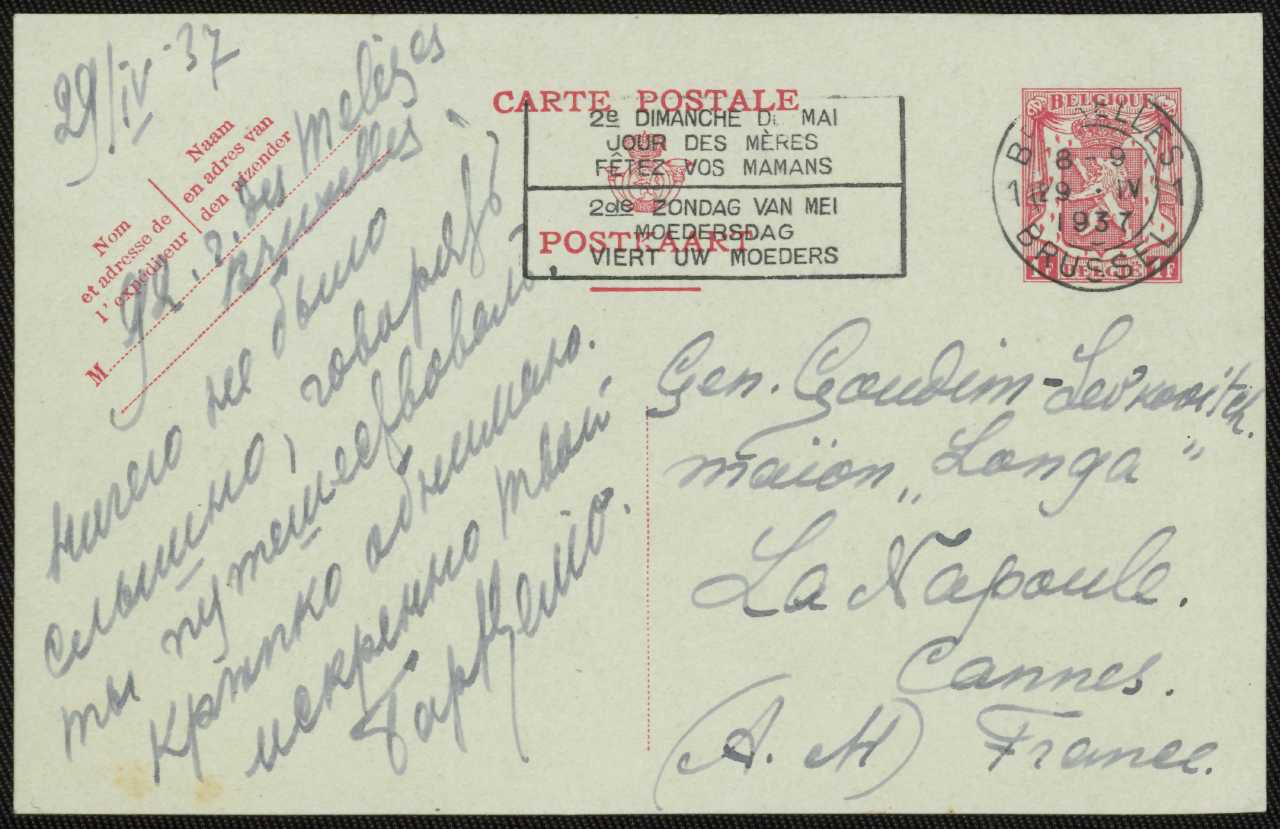 29/IV 37
CARTE POSTALE
POSTKAART
2e DIMANCHE DE MAI
JOUR DES MÈRES
FÊTEZ VOS MAMANS
2de ZONDAG VAN MEI
MOEDERSDAG
VIERT UW MOEDERS
BELGIQUE
BRUXELLES
8-9
1 29.IV 1
1937
BRUSSEL
1F BELGIE 1F
Naam
en adres van
den afzender
Nom
et adresse de
l'expéditeur
M
r. des Mélèzes
Bruxelles
ничего не было
слышно, говорят
ты путешествовалъ.
Крѣпко обнимаю.
искренно твой
Gen. Goudim-Levkovitch.
maison „Longa"
La Napoule.
Cannes.
(A. M) France.